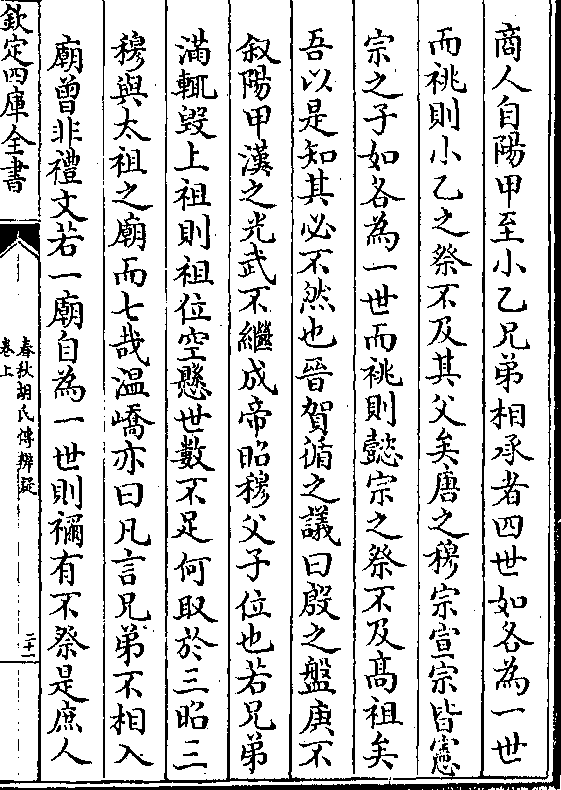 商人自陽甲至小乙兄弟相承者四世如各為一世
而祧則小乙之祭不及其父矣唐之穆宗宣宗皆憲
宗之子如各為一世而祧則懿宗之祭不及髙祖矣
吾以是知其必不然也晉賀循之議曰殷之盤庚不
叙陽甲漢之光武不繼成帝昭穆父子位也若兄弟
滿輒毀上祖則祖位空懸世數不足何取於三昭三
穆與太祖之廟而七哉温嶠亦曰凡言兄弟不相入
廟曾非禮文若一廟自為一世則禰有不祭是庶人
欽定四庫全書
春秋胡氏傳辨疑
卷上
二十一